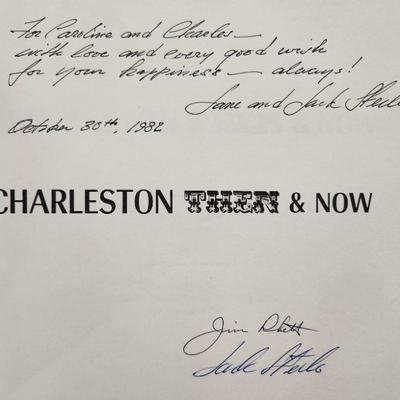 For Caroline and Charles —
with love and every good wish
for your happiness — always!
Jane and Jack Steele
October 30th, 1982
CHARLESTON THEN & NOW
Jim Rhett
Jack Steele